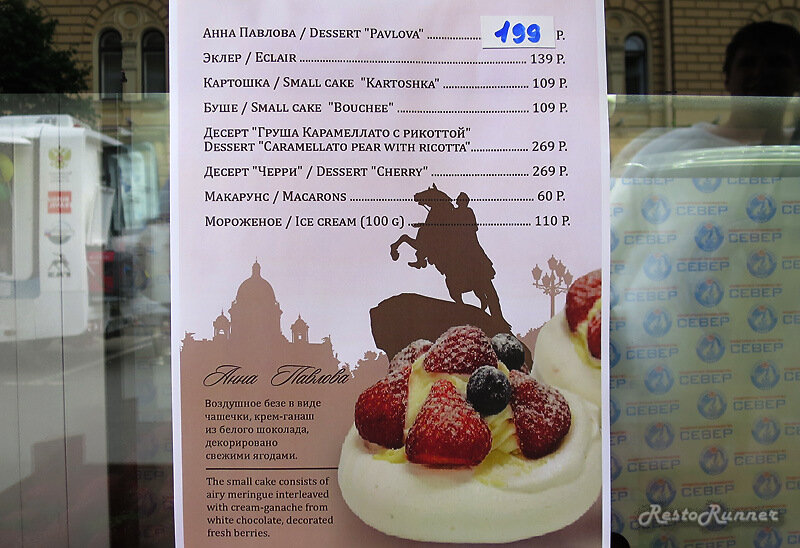 Анна Павлова / Dessert "Pavlova" ........................ 199 Р.
Эклер / Eclair ........................ 139 Р.
Картошка / Small cake "Kartoshka" ........................ 109 Р.
Буше / Small cake "Bouchee" ........................ 109 Р.
Десерт "Груша Карамеллато с рикоттой"
Dessert "Caramellato pear with ricotta"........................ 269 Р.
Десерт "Черри" / Dessert "Cherry" ........................ 269 Р.
Макарунс / Macarons ........................ 60 Р.
Мороженое / Ice cream (100 g) ........................ 110 Р.
Анна Павлова
Воздушное безе в виде
чашечки, крем-ганаш
из белого шоколада,
декорировано
свежими ягодами.
The small cake consists of
airy meringue interleaved
with cream-ganache from
white chocolate, decorated
fresh berries.
СЕВЕР
СЕВЕР
СЕВЕР
СЕВЕР
RestoRunner